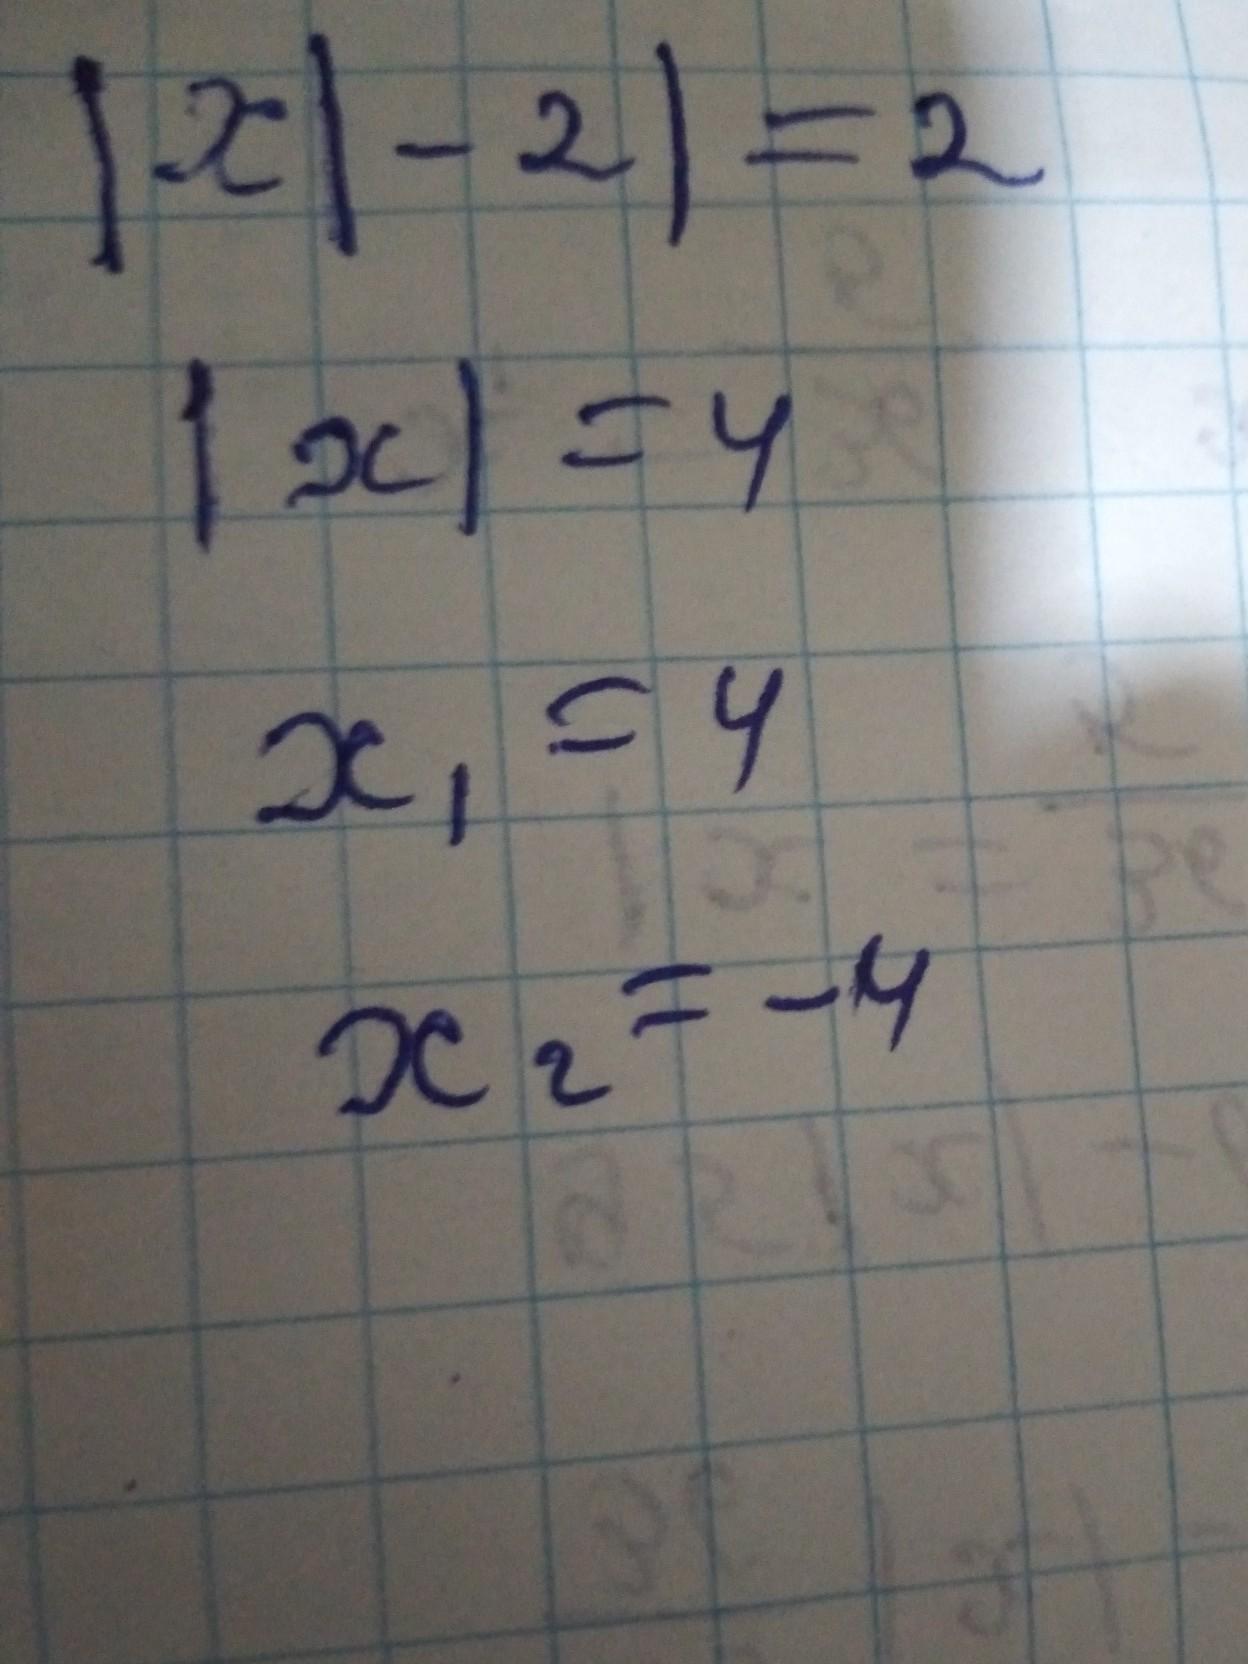 |x|-2|=2
|x|=4
x₁=4
x₂=-4